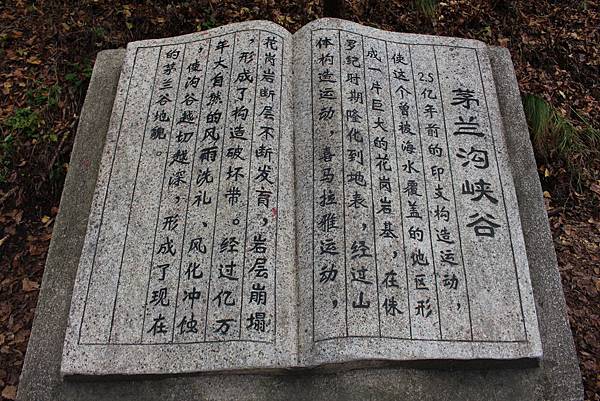 茅兰沟峡谷
2.5亿年前的印支构造运动，
使这个曾被海水覆盖的地区形
成一片巨大的花岗岩基，在侏
罗纪时期隆化到地表，经过山
体构造运动，喜马拉雅运动，
花岗岩断层不断发育，岩层崩塌
，形成了构造破坏带。经过亿万
年大自然的风雨洗礼、风化冲蚀
，使沟谷越切越深，形成了现在
的茅兰谷地貌。